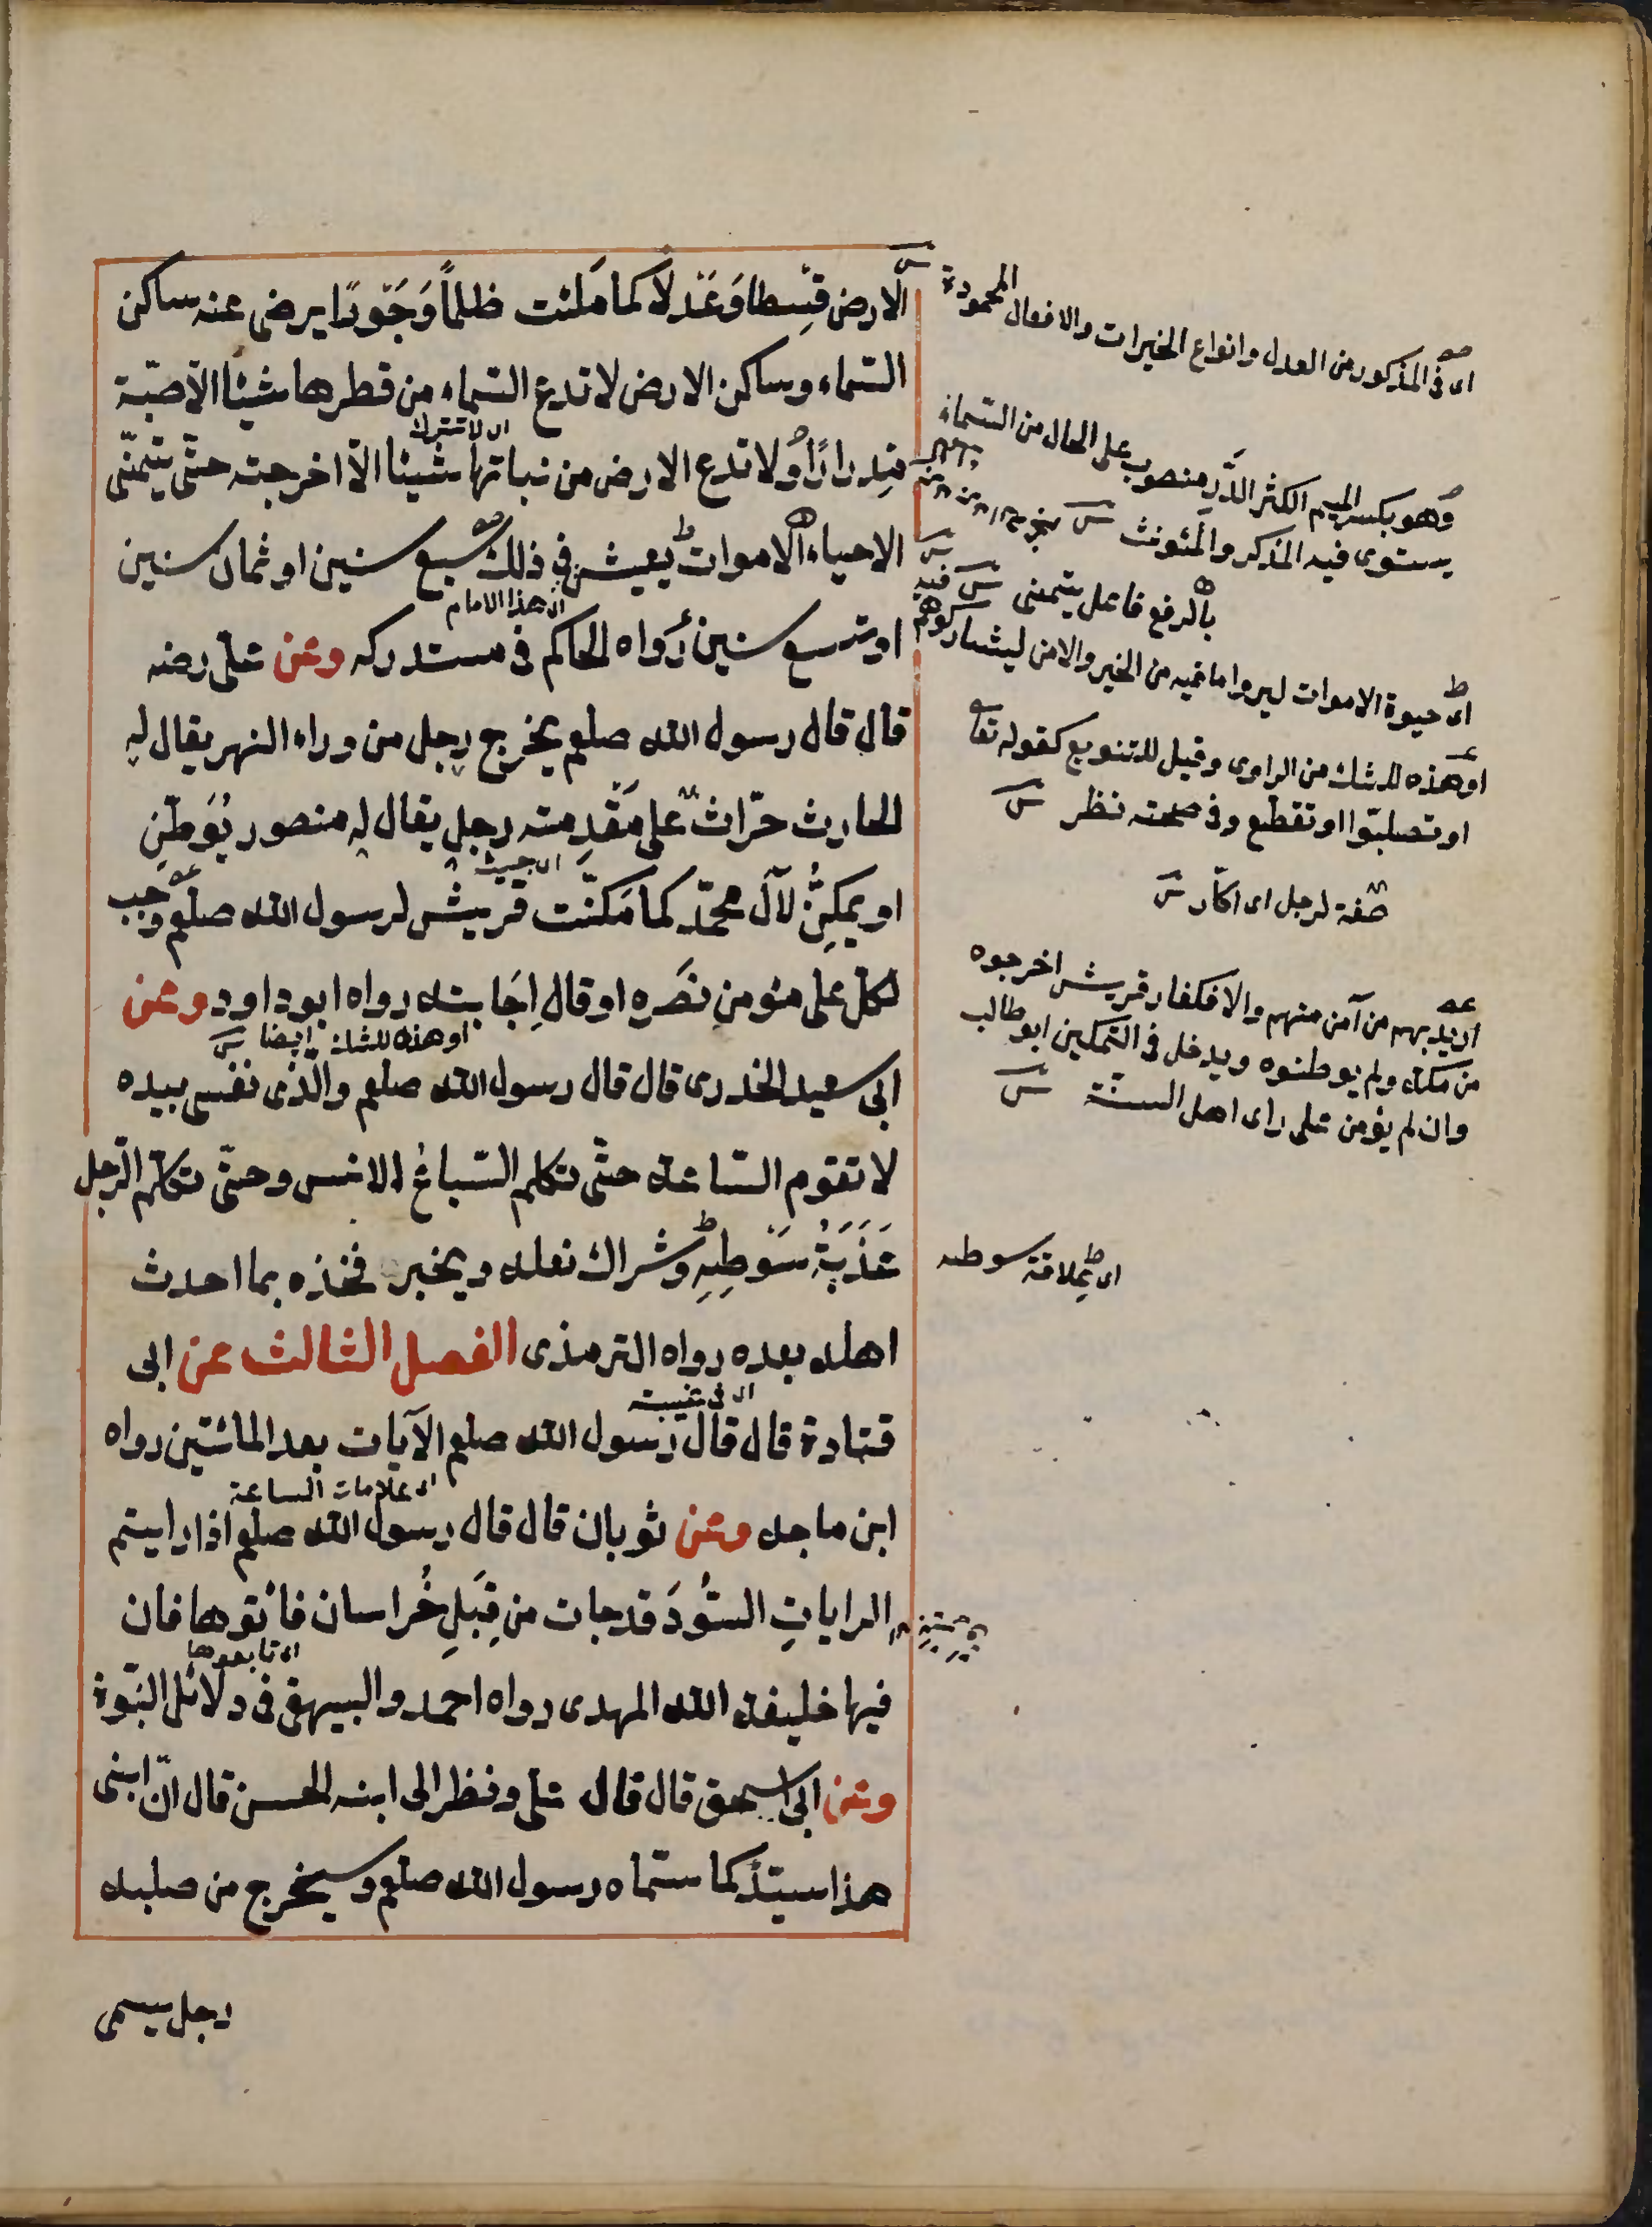 الارض قِسطا وَعَدلًا كما مُلئت ظلماً وَجَورًا يرضى عنه ساكن
السّماء وساكن الارض لا تدع السّماء من قطرها شيئا الّا صبّة
اى لا تترك
مِدرارًا ولا تدع الارض من نباتها شيئا الّا اخرجته حتّى يتمنّى
الاحياء الاموات يعيش فى ذلك سبع سنين او ثمان سنين
اى هذا الامام
او تسع سنين رواه الحاكم فى مستدركه وعن على رضه
قال قال رسول الله صلعم يخرج رجل من وراء النهر يقال له
الحارث حرّاث على مقدِمته رجل يقال له منصور يُوَطّن
اى جيشه
او يمكّن لآل محمّد كما مَكّنت قريش لرسول الله صلعم وجب
لكل على مئومن نصَره او قال اِجَابته رواه ابوداود وعن
او هذه للشك ايضا
ابى سعيد الخدرى قال قال رسول الله صلعم والّذى نفسى بيده
لا تقوم السّاعة حتّى تكلم السّباعُ الانس وحتّى تكلّم الرّجل
عَذَبَةُ سَوطِهِ وشراك نعله ويخبر فخذه بما احدث
اهله بعده رواه الترمذى الفصل الثالث عن ابى
اى فى غيبته
قتادة قال قال رسول الله صلعم الآيات بعد المائتين رواه
اى علامات الساعة
ابن ماجه وعن ثوبان قال قال رسول الله صلعم اذا رايتم
الراياتِ السُّودَ قد جات من قِبَلِ خُراسان فائتوها فان
اى تابعوها
فيها خليفة الله المهدى رواه احمد والبيهقى فى دلائل النبّوة
وعن ابى اسحق قال قال على ونظر الى ابنه الحسن قال انّ ابنى
هذا سيّد كما سمّاه رسول الله صلعم وسيخرج من صلبه
رجل يسمى
اى فى المذكور من العدل وانواع الخيرات والافعال المحمودة
وهو بكسر الميم الكثر الدَّرِ منصوب على الحال من السّماء
يستوى فيه المذكر والمئونث
بالرفع فاعل يتمنى
اى حيوة الاموات ليروا ما فيه من الخير والامن ليشاركوهم فيه
او هذه للشك من الراوى وقيل للتنويع كقوله تعا
او تصلبّوا او تقطع وفى صحته نظر
صفة لرجل اى اكّار
اريد بهم من آمن منهم والا فكفار قريش اخرجوه
من مكة ولم يوطنوه ويدخل فى التمكين ابو طالب
وان لم يؤمن على راى اهل السنّة
اى عِلاقة سوطه